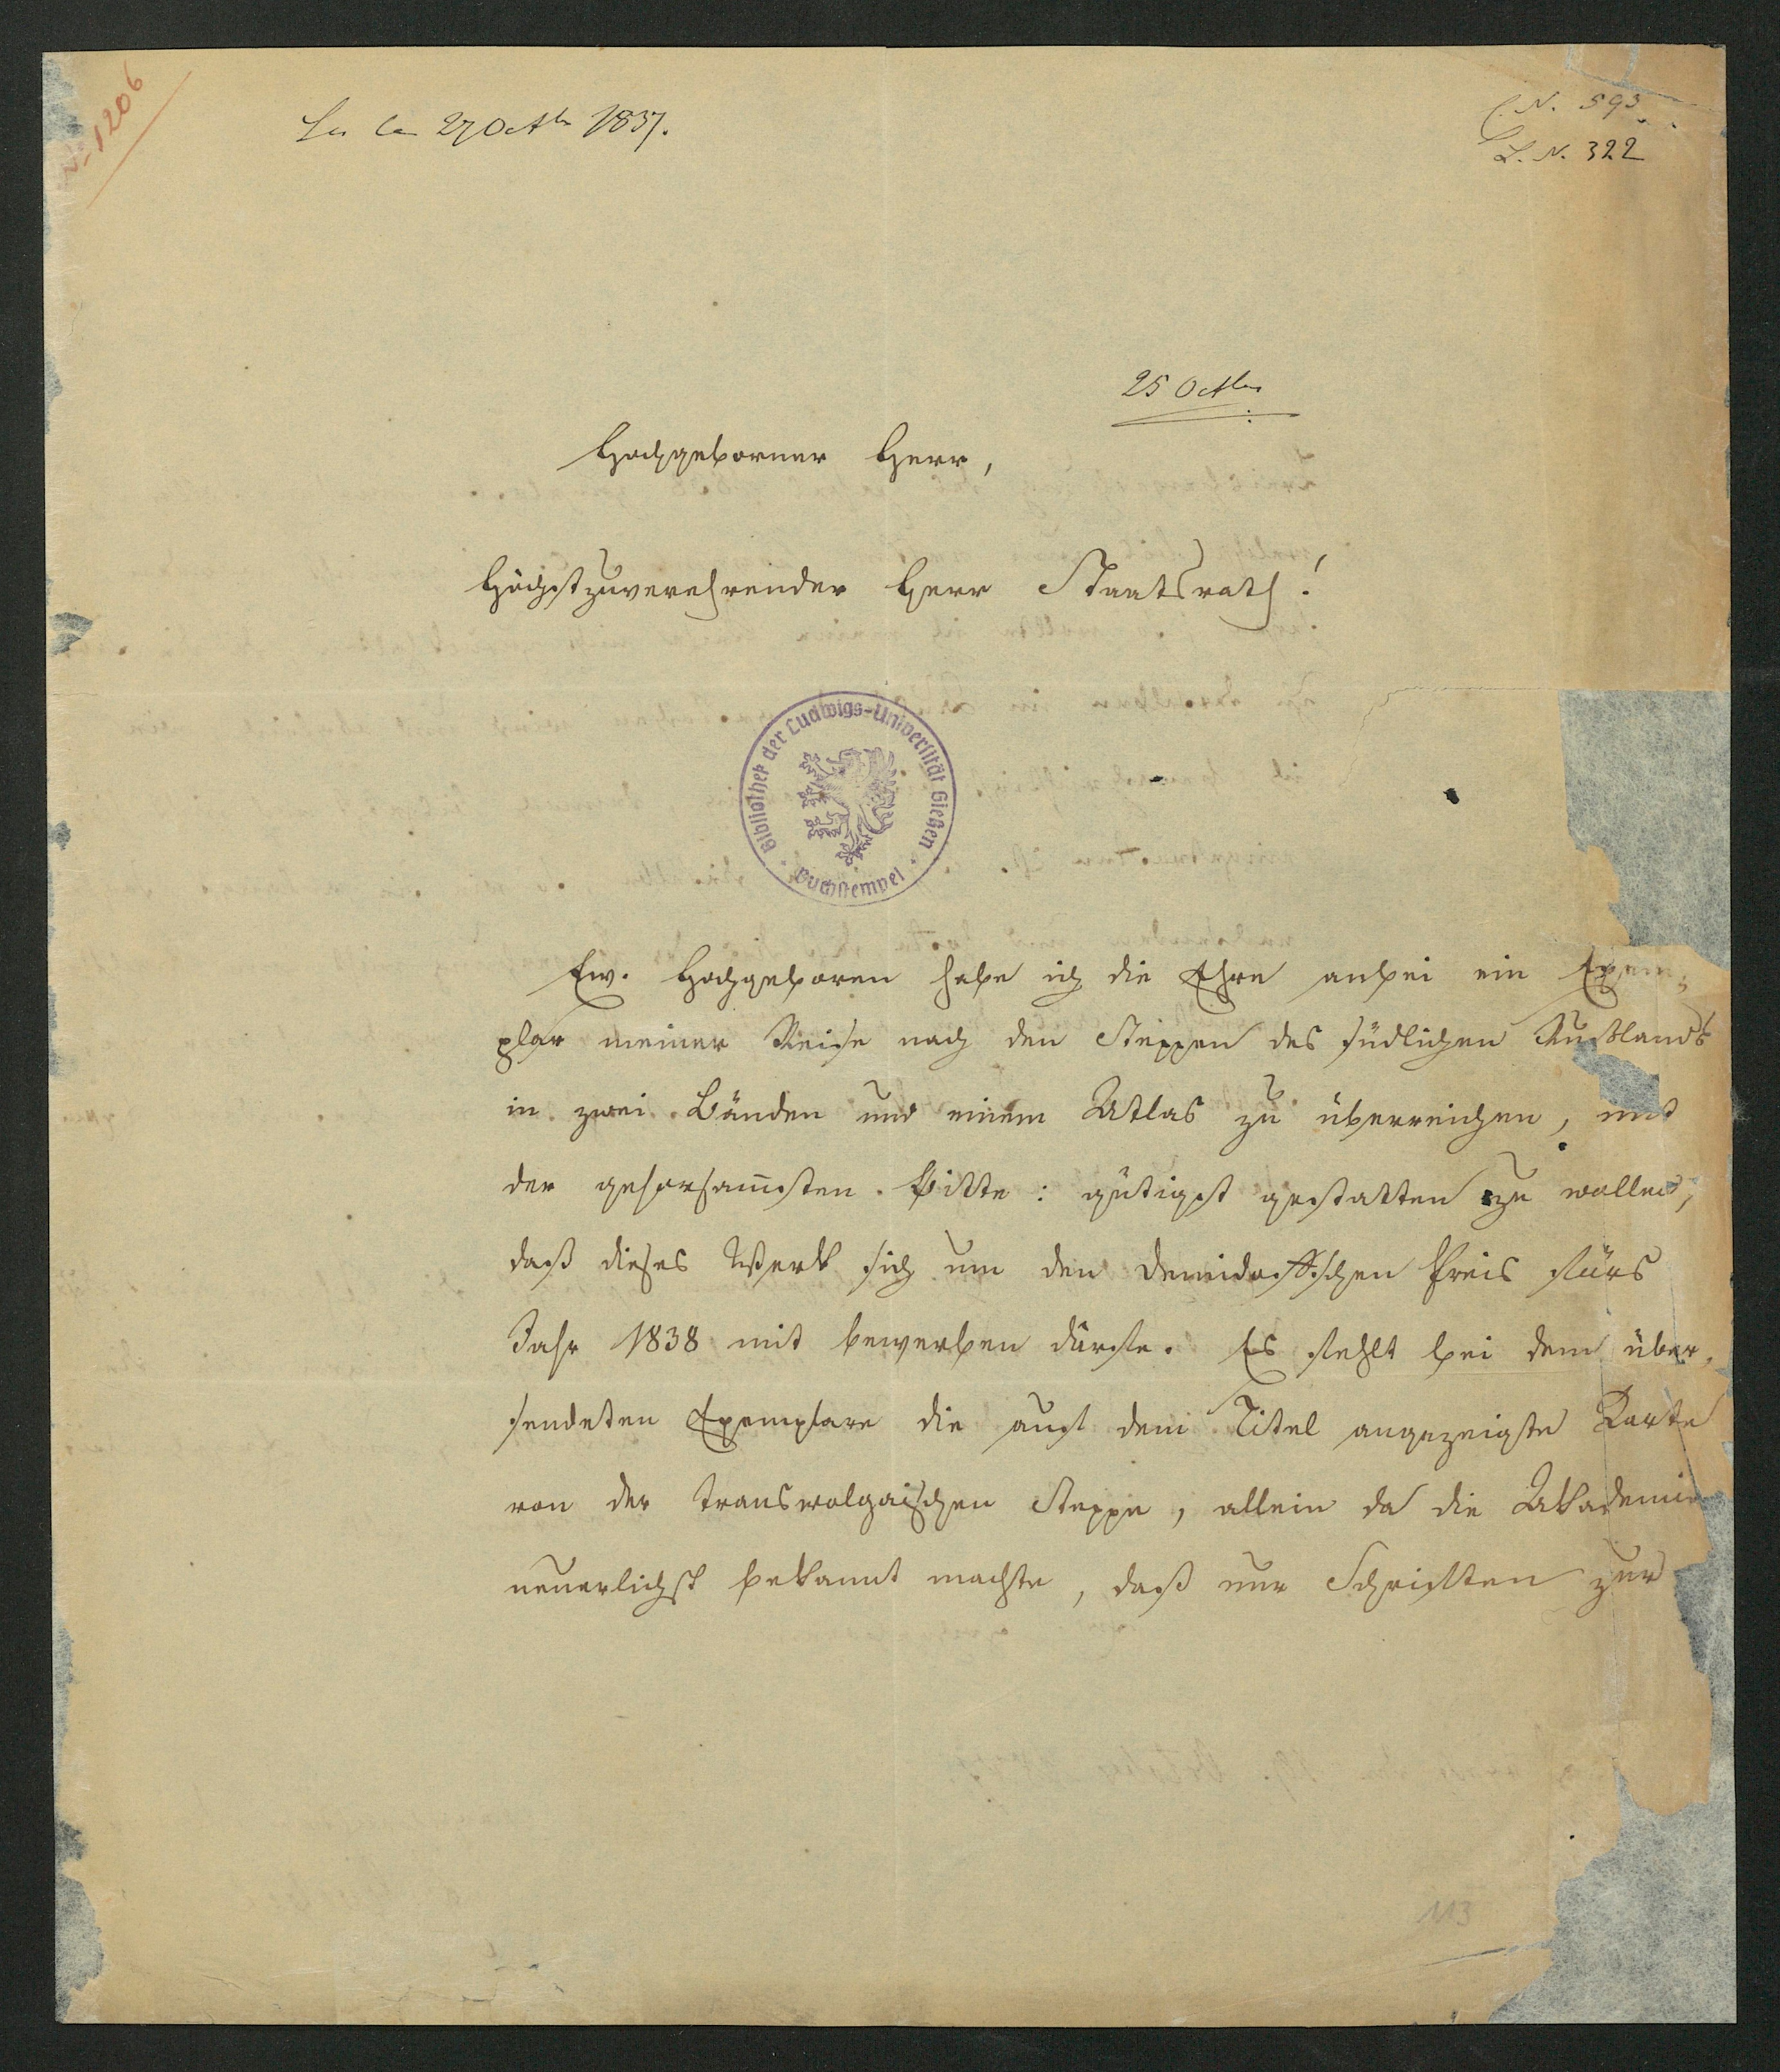 № 1206
Lu le 27 Octbr 1837.
C. N. 593.
L. N. 322
25 Octbr
Hochgeborner Herr,
Höchstzuverehrender Herr Staatsrath!
Bibliothek der Ludwigs-Universität Gießen
Buchstempel
Ew. Hochgeboren habe ich die Ehre anbei ein Exem-
plar meiner Reise nach den Steppen des südlichen Rußlands
in zwei Bänden und einem Atlas zu überreichen, mit
der gehorsam̄sten Bitte: gütigst gestatten zu wollen,
daß dieses Werk sich um den Demidoffschen Preis fürs
Jahr 1838 mit bewerben dürfe. Es fehlt bei dem über-
sendeten Exemplare die auf dem Titel angezeigte Karte
von der transwolgaischen Steppe, allein da die Akademie
neuerlichst bekannt machte, daß nur Schriften zur
113